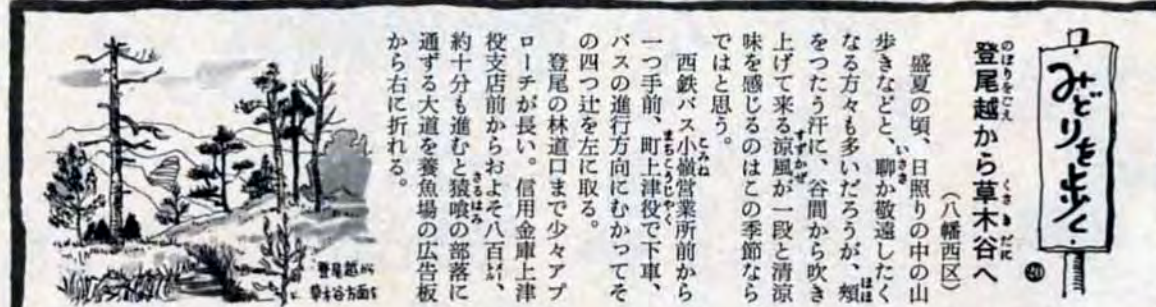 みどりを歩く
20
登尾越から草木谷へ
のぼりをごえ
くさきだに
(八幡西区)
盛夏の頃、日照りの中の山
歩きなどと、聊か敬遠したく
いささ
なる方々も多いだろうが、頬
ほほ
をつたう汗に、谷間から吹き
上げて来る涼風が一段と清涼
すずかぜ
味を感じるのはこの季節なら
ではと思う。
西鉄バス小嶺営業所前から
こみね
一つ手前、町上津役で下車、
まちこうじやく
バスの進行方向にむかってそ
の四つ辻を左に取る。
登尾の林道口まで少々アプ
ローチが長い。信用金庫上津
役支店前からおよそ八百㍍、
約十分も進むと猿喰の部落に
さるはみ
通ずる大道を養魚場の広告板
から右に折れる。
登尾越から
草木谷方面を